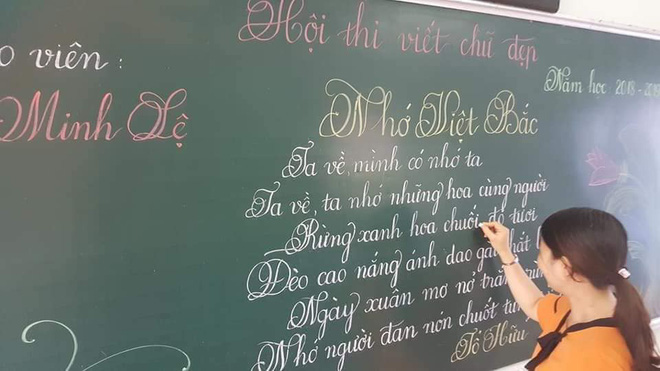 Hội thi viết chữ đẹp
o viên :
Minh Lệ
Năm học: 2018 - 2019
Nhớ Việt Bắc
Ta về, mình có nhớ ta
Ta về, ta nhớ những hoa cùng người
Rừng xanh hoa chuối đỏ tươi
Đèo cao nắng ánh dao gài thắt
Ngày xuân mơ nở trắng
Nhớ người đan nón chuốt
Tố Hữu